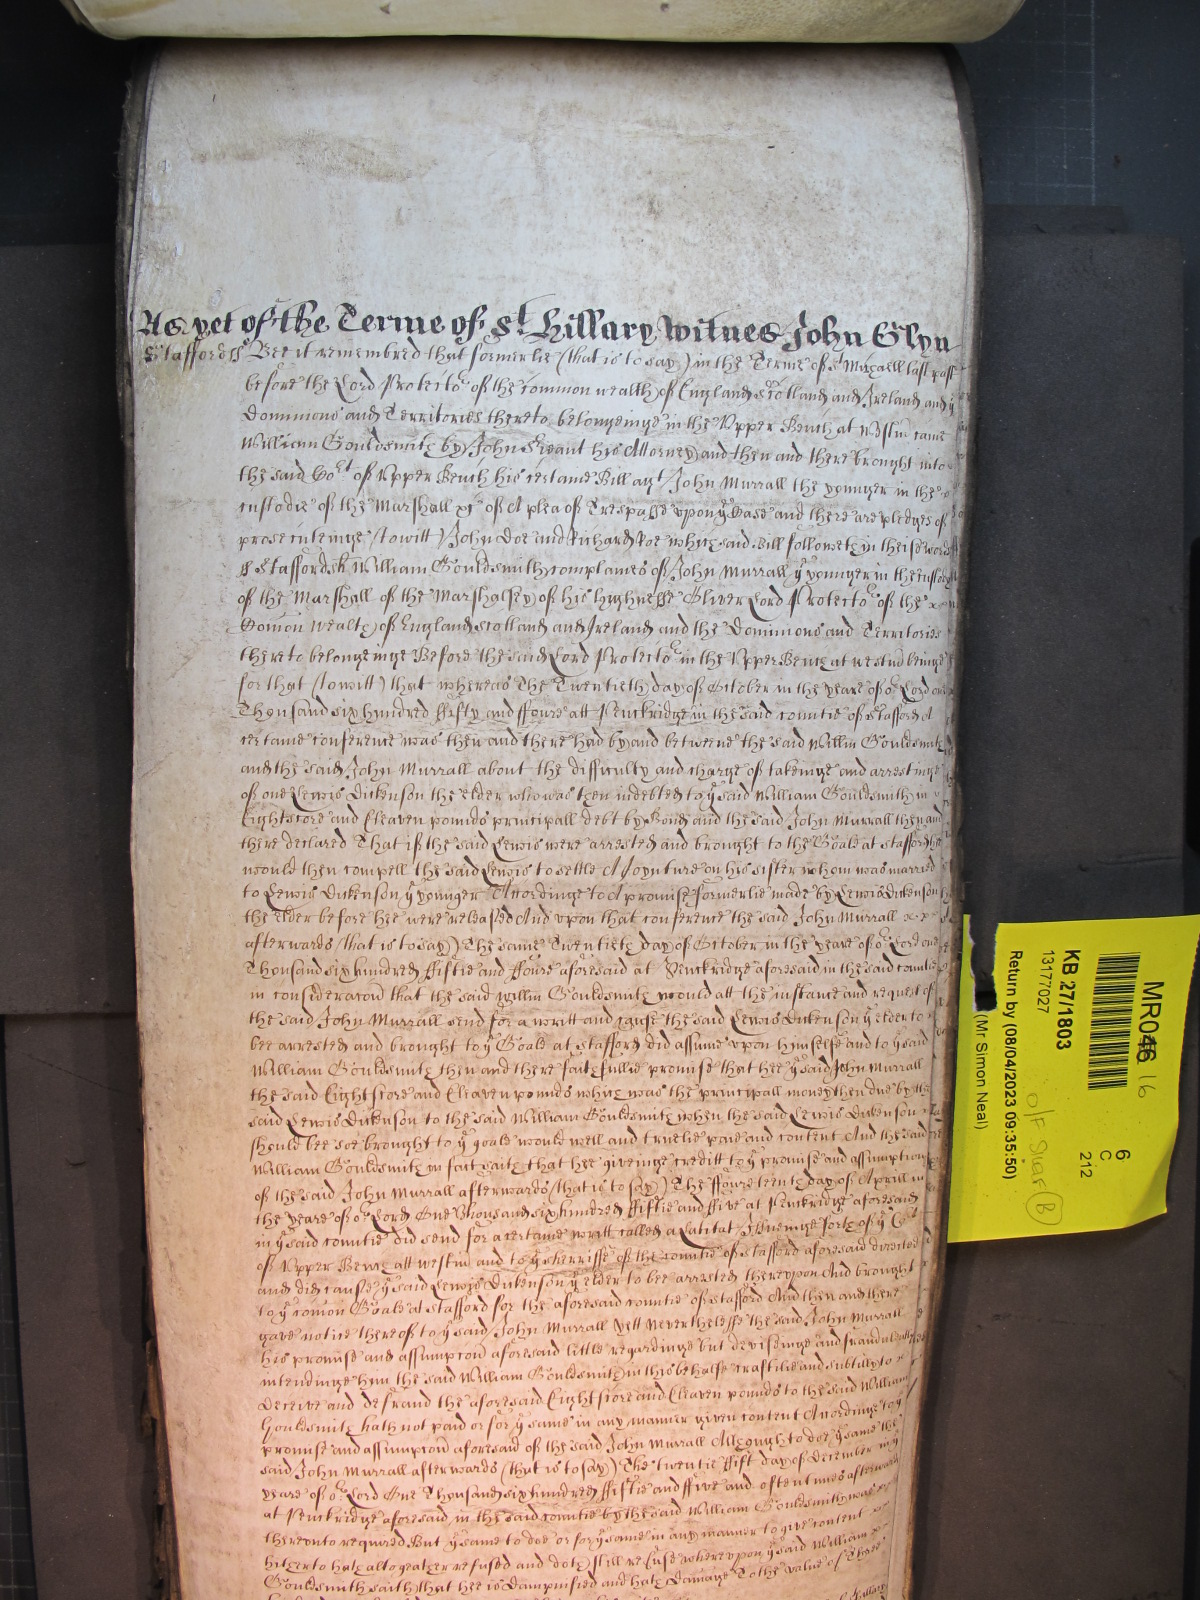 As yet of the Terme of St. Hillary Witnes John Glyn
Stafford ss Bee it remembred that formerlie (that is to say) in the Terme of St Michaell last past
before the Lord Protector of the Common wealth of England Scotland and Ireland and ye
Dominions and Territories thereto belongeinge in the Upper Bench at Westmr came
William Gouldsmith by John his Attorney and then and there brought into
the said Cort of Upper Bench his certaine Bill agt John Murrall the younger in the
custodie of the Marshall &c of A plea of Trespasse upon ye Case and there are pledges of
prosecuteinge (towitt) John Doe and Richard Roe which said Bill followeth in theise words
ss Staffordsh William Gouldsmith complaines of John Murrall ye younger in the custody
of the Marshall of the Marshalsey of his highnesse Oliver Lord Protector of the
Comon wealth of England Scotland and Ireland and the Dominions and Territories
thereto belongeinge Before the said Lord Protector in the Upper Bench at westmr beinge
for that (towitt) that whereas The Twentieth day of October in the yeare of or Lord one
Thousand six hundred ffifty and ffoure att Penckridge in the said countie of Stafford A
certaine conference was then and there had by and betweene the said Willm Gouldsmith
and the said John Murrall about the difficulty and charge of takeinge and arrestinge
of one Lewis Dickenson the elder who was then indebted to ye said William Gouldsmith in
Eightscore and Eleaven pounds principall debt by Bond and the said John Murrall then and
there declared That if the said Lewis were arrested and brought to the Goale at Stafford he
would then compell the said Lewis to settle A Joynture on his sister whom was married
to Lewis Dickenson ye younger Acordinge to A promise formerlie made by Lewis Dickenson
the elder before hee were released And upon that conference the said John Murrall
afterwards (that is to say) The same Twentieth day of October in the yeare of or Lord one
Thousand six hundred ffiftie and ffoure aforesaid at Penckridge aforesaid in the said countie
in consideracon that the said Willm Gouldsmith would att the instance and request of
the said John Murrall send for a writt and cause the said Lewis Dickenson ye elder to
bee arrested and brought to ye Goale at Stafford did assume upon himselfe and to ye said
William Gouldsmith then and there faithfullie promise that hee ye said John Murrall
the said Eightscore and Eleaven pounds which was the principall money then due by the
said Lewis Dickenson to the said William Gouldsmith when the said Lewis Dickenson
should bee soe brought to ye goale would well and truelie paie and content And the said
William Gouldsmith in fact saith that hee giveinge creditt to ye promise and assumption
of the said John Murrall afterwards (that is to say) The ffoureteenth day of Aprill in
the yeare of or Lord One thousand six hundred ffiftie and ffive at Penckridge aforesaid
in ye said countie did send for a certaine writt called a Latitat Issueinge forth of ye Cort
of Upper Bench att westmr and to ye sherriffe of the countie of Stafford aforesaid directed
and did cause ye said Lewis Dickenson ye elder to bee arrested thereupon And brought
to ye comon Goale at Stafford for the aforesaid countie of Stafford And then and there
gave notice thereof to ye said John Murrall yett neverthelesse the said John Murrall
his promise and assumpcon aforesaid little regardinge but deviseinge and fraudulentlie
intendinge him the said William Gouldsmith in this behalfe craftilie and subtilly to
Deceive and defraud the aforesaid Eightscore and Eleaven pounds to the said William
Gouldsmith hath not paid or for ye same in any manner given content Acordinge to ye
promise and assumpcon aforesaid of the said John Murrall Although to doe ye same the
said John Murrall afterwards (that is to say) The twentie ffift day of December in ye
yeare of or Lord One Thousand six hundred ffiftie and ffive and oftentimes afterwards
at Penckridge aforesaid in the said countie by the said William Gouldsmith was
thereunto required But ye same to doe or for ye same in any manner to give content
hitherto hath altogeather refused and doth still refuse whereupon ye said William
Gouldsmith saith that hee is dampnified and hath Damage To the value of Three
MR046
16
KB 27/1803
13177027
Return by (08/04/2023 09:35:50)
(Mr Simon Neal)
6
C
212
O/F Shelf B